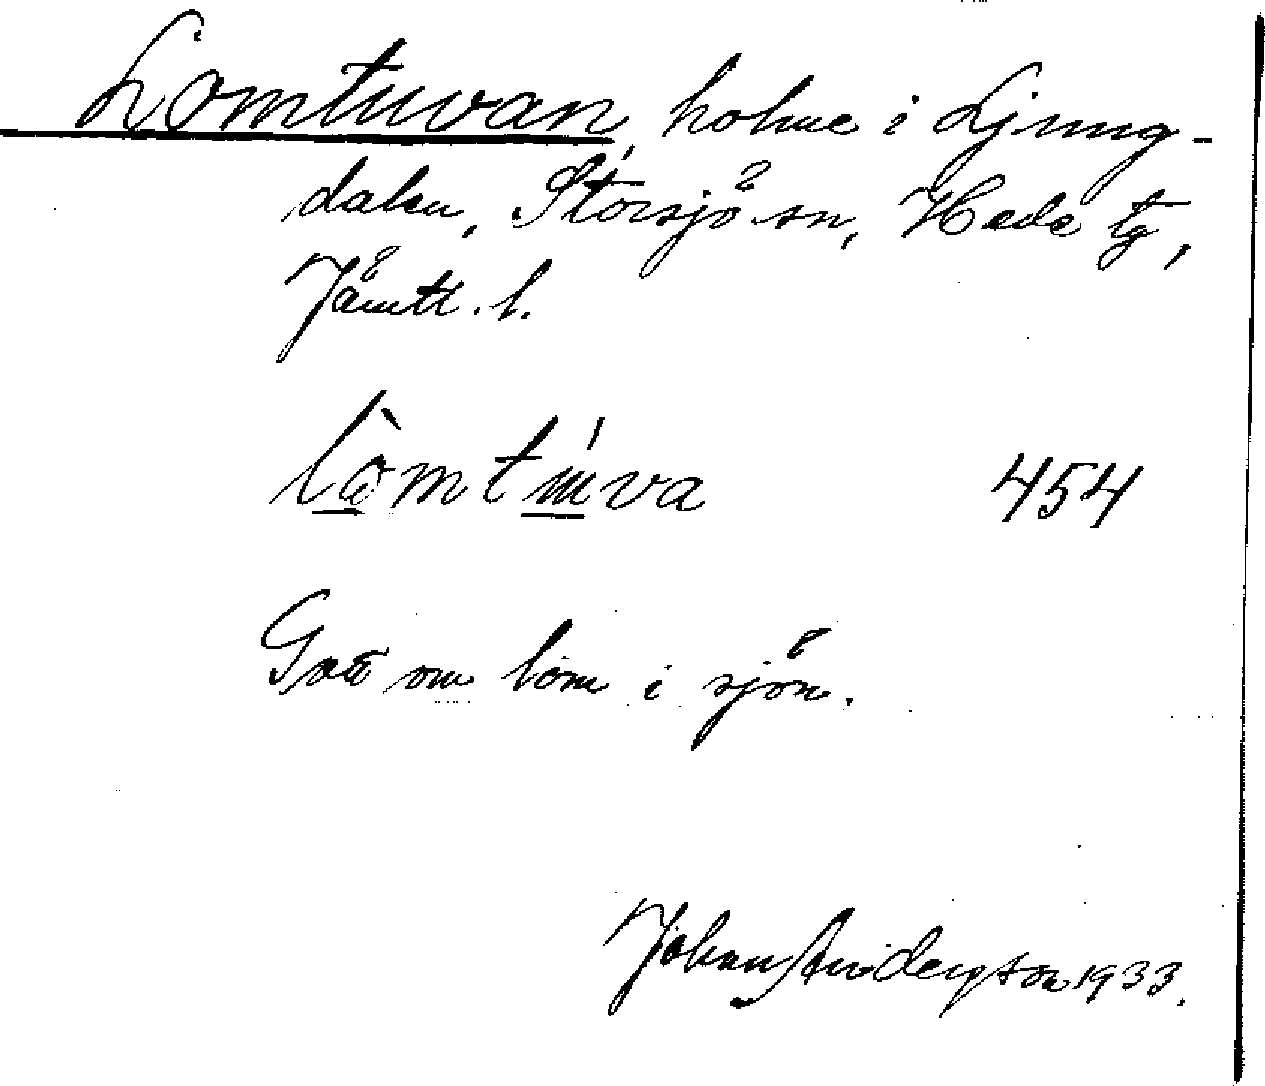 Lomtuvan, holme i Ljung-
dalen, Storsjö sn, Hede tg,
Jämtl. l.
lòmtúva 454
Gott om lom i sjön.
Johan Anderston 1933.